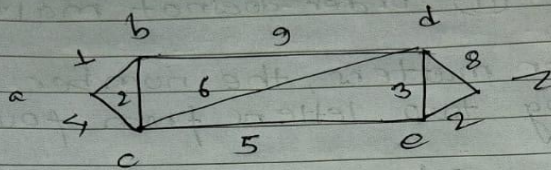 b 9 d
1 8
a 2 6 3 z
4 2
c 5 e